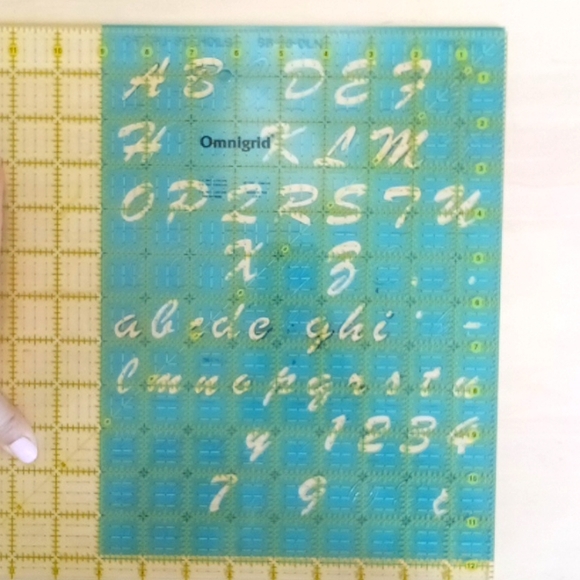 A B D E F
H Omnigrid K L M
O P Q R S T U
X Z
a b c d e g h i
l m n o p q r s t u
y 1 2 3 4
7 9